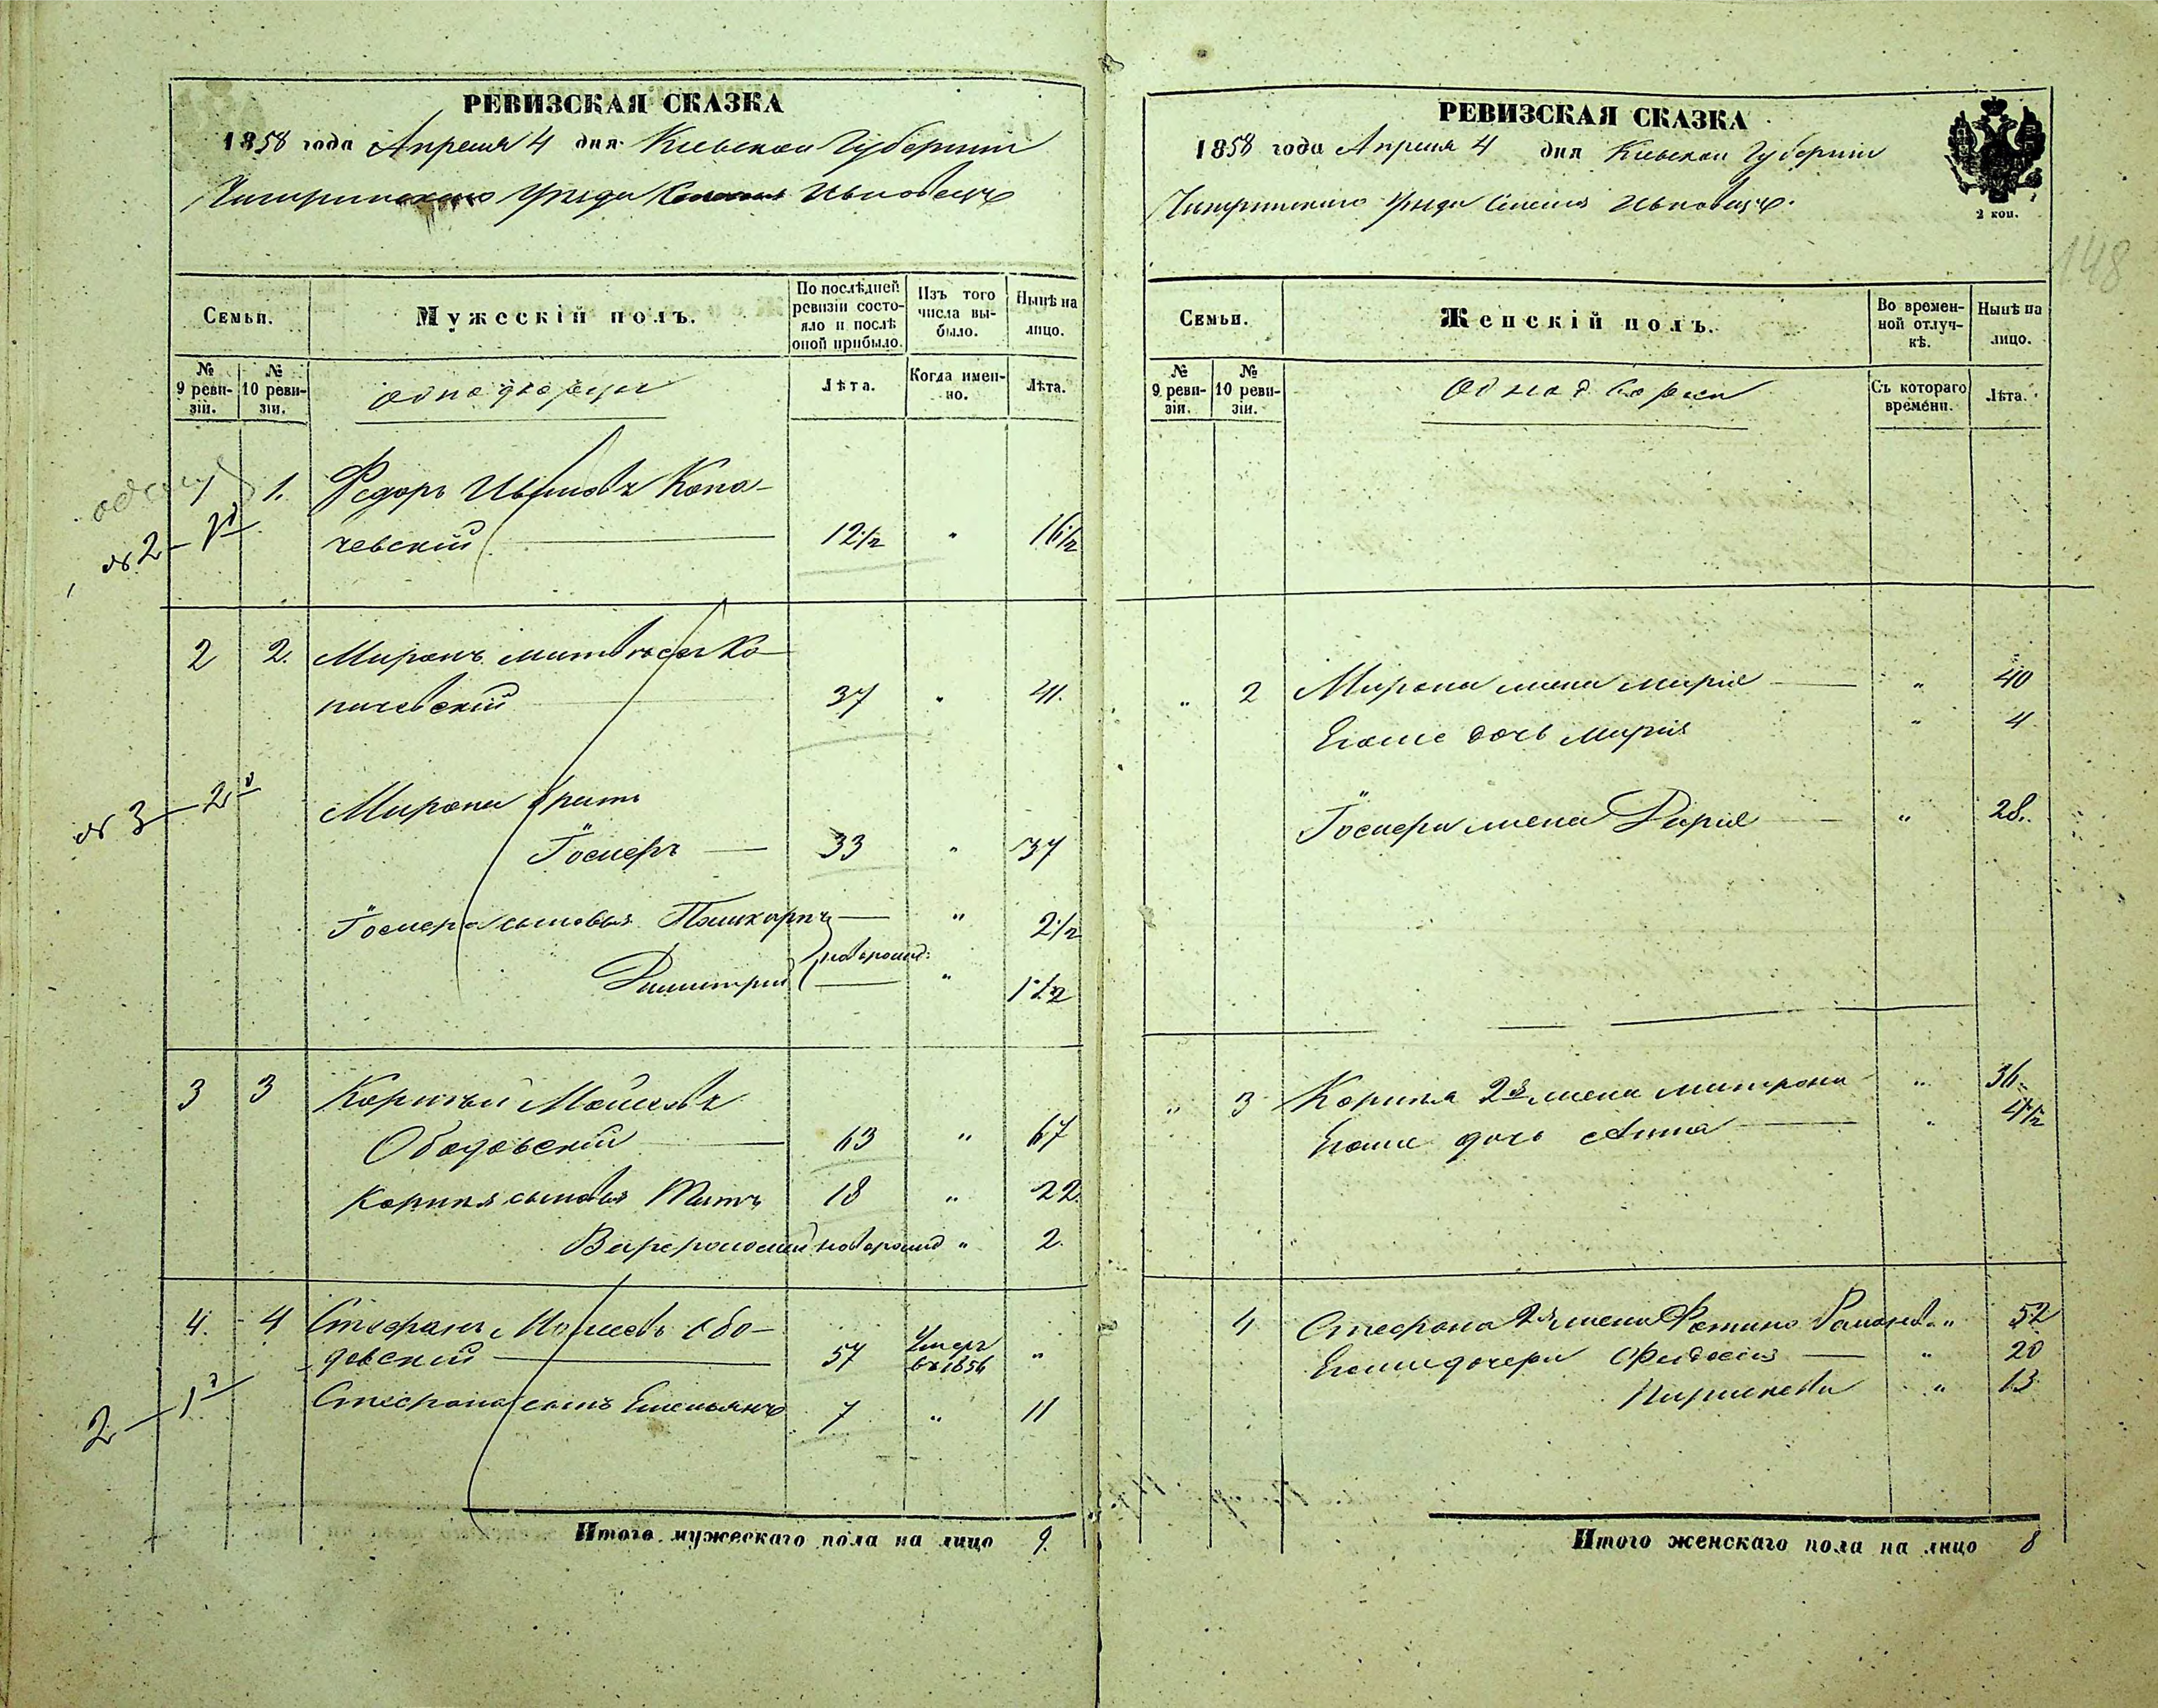 РЕВИЗСКАЯ СКАЗКА
1858 года Апреля 4 дня Киевской Губернии
Чигиринского Уезда Селения Ивковецъ
Семьи.
Мужескій полъ.
По послѣдней ревизіи состояло и послѣ оной прибыло.
Изъ того числа выбыло.
Нынѣ на лицо.
№ 9 ревизіи.
№ 10 ревизіи.
однодворцы
Лѣта.
Когда именно.
Лѣта.
1 1. Федоръ Ивановъ Копа-
чевскій 12½ " 16½
№ 2 —
2 2. Миронъ Матвѣевъ Ко-
пачевскій 37 " 41.
№ 3 — 2
Мирона братъ
Іосиеръ 33 " 37
Іосиера сыновья " 2½
Димитрий новорожд: " 1½
3 3 Корнилий Моисеевъ
Ободовскій 63 " 67
Корнилия сыновья Титъ 18 " 22.
Варфоломей новорожд " 2.
4. 4 Стефанъ Моисеевъ Обо-
довский 57 Умеръ въ 1856 "
2 — 1
Стефана сынъ Емельянъ 7 " 11
Итого мужескаго пола на лицо 9.
РЕВИЗСКАЯ СКАЗКА
1858 года Апреля 4 дня Киевской Губернии
2 коп.
Чигиринского Уезда Селения Ивковецъ.
148
Семьи.
Женскій полъ.
Во временной отлучкѣ.
Нынѣ на лицо.
№ 9 ревизіи.
№ 10 ревизіи.
Однодворки
Съ котораго времени.
Лѣта.
" 2 Мирона жена Мария " 40
Егоже дочь Мария " 4
Іосиера жена Дария " 28.
" 3 Корнилия 2я жена Митрона " 36.
Егоже дочь Анна " 4½
4 Стефана 2я жена Фотина Романова " 52
Егоже дочери Феодосия " 20
Параскева " 13
Итого женскаго пола на лицо 8